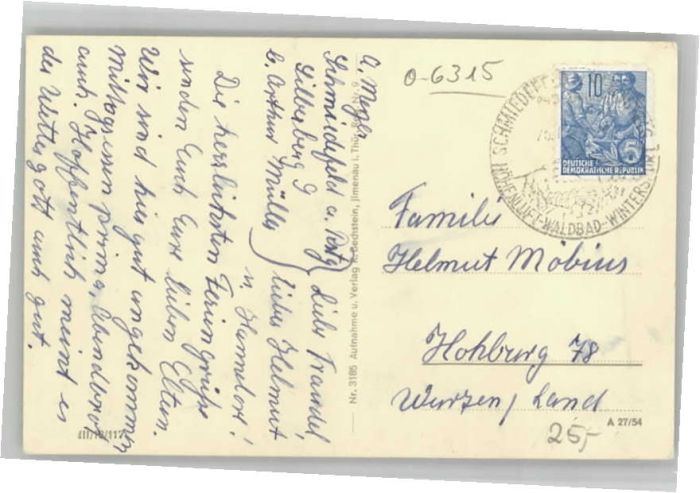 A. Meyer
Schmiedefeld a. Rstg
Silberberg 9
b. Arthur Müller
Liebe Traudel,
lieber Helmut
u. Hannelore!
Die herzlichsten Feriengrüße
senden Euch Eure lieben Eltern.
Wir sind hier gut angekommen,
Mittagessen prima, Abendbrot
auch. Hoffentlich meint es
der Wettergott auch gut.
III/18/117
Nr. 3185 Aufnahme u. Verlag R. Bechstein, Jlmenau i. Thür.
0-6315
10
DEUTSCHE
DEMOKRATISCHE REPUBLIK
5
SCHMIEDEFELD
HÖHENLUFT-WALDBAD-WINTERSPORT
Familie
Helmut Möbius
Hohburg 78
Wurzen/Land
A 27/54
25,-